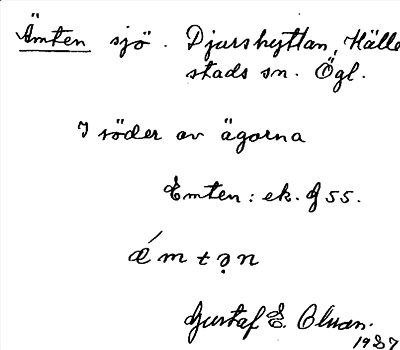 Ämten sjö. Djurshyttan, Hälle
stads sn. Ögl.
I söder av ägorna
Emten: ek. G 55.
ǽ m t ə̣ n
Gustaf E. Olsson.
1937